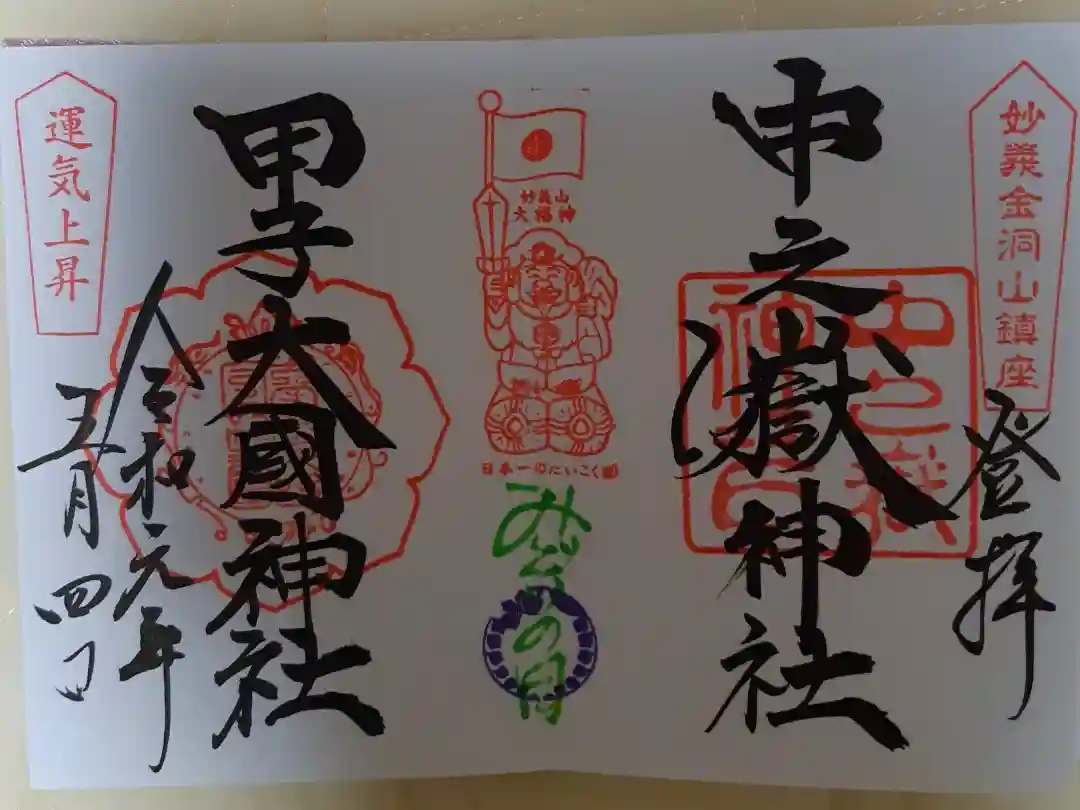 妙義金洞山鎮座
登拝
中之嶽神社
中之嶽
神社
妙義山
大福神
日本一のだいこく様
みどりの日
甲子大國神社
運気上昇
令和元年
五月四日